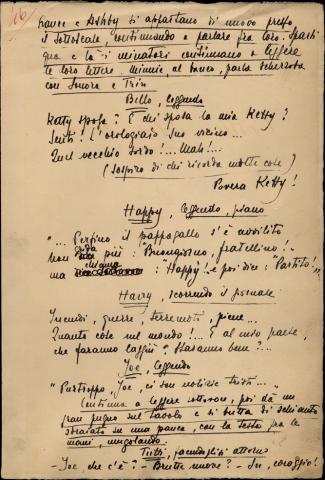 16)
Rance e Ashby si appartano di nuovo presso
il sottoscala, continuando a parlare fra loro. Sparsi
qua e là i minatori continuano a leggere
le loro lettere. Minnie al banco, parla scherzosa
con Sonora e Trin
Bello, leggendo
Ketty sposa? E chi sposa la mia Ketty?
Senti! L'orologiaio suo vicino...
Quel vecchio sordo!... Mah!...
(sospira di chi ricorda molte cose)
Povera Ketty!
Happy, leggendo, piano
"... Perfino il pappagallo s'è avvilito
non più: "Buongiorno, fratellino!"
ma chiama : Happy! e poi dice: "Partito!"...
Harry, scorrendo il giornale
Incendi, guerre, terremoti, piene...
Quante cose nel mondo!... E al mio paese,
che faranno laggiù? Staranno bene?...
Joe, leggendo
"Purtroppo, Joe, ci son notizie tristi..."
Continua a leggere sottovoce, poi dà un
gran pugno sul tavolo e si butta di schianto
sdraiato su una panca, con la testa fra le
mani, mugolando.
Tutti, facendoglisi attorno
- Joe, che c'è? - Brutte nuove? - Su, coraggio!